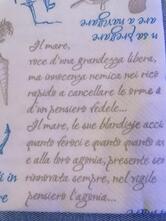 n sa pregare
are a navigare
Il mare,
voce d'una grandezza libera,
ma innocenza nemica nei rico
rapido a cancellare le orme d
d'un pensiero fedele...
Il mare, le sue blandizie acci
quanto feroci e quanto quanto
e alla loro agonia, presente se
rinnovata sempre, nel vigile
pensiero l'agonia...
in